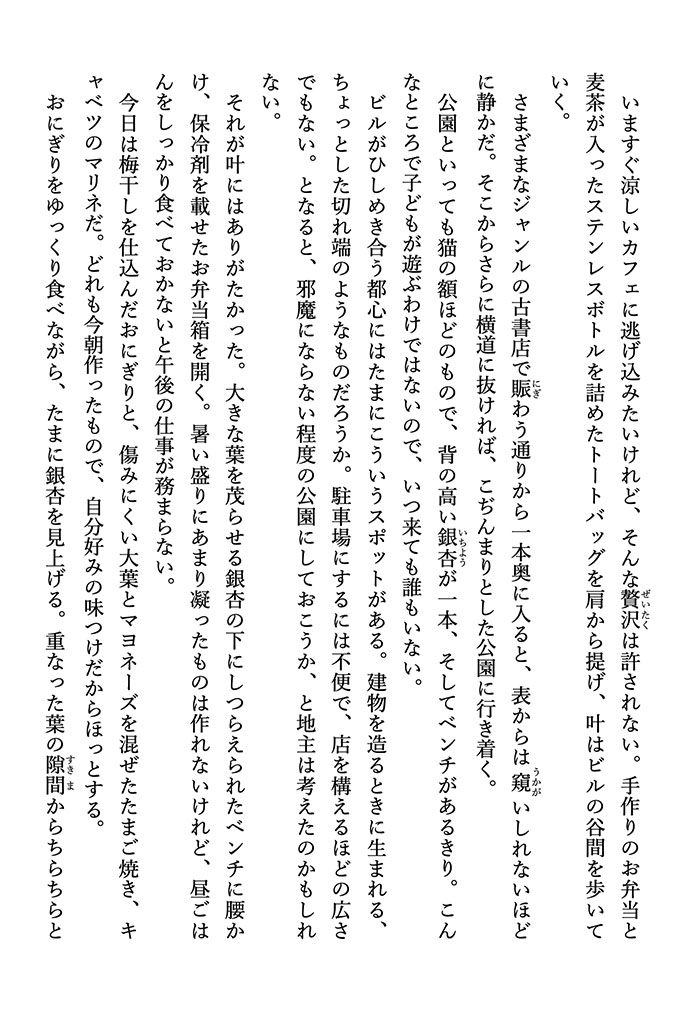 いますぐ涼しいカフェに逃げ込みたいけれど、そんな贅沢は許されない。手作りのお弁当と
麦茶が入ったステンレスボトルを詰めたトートバッグを肩から提げ、叶はビルの谷間を歩いて
いく。
さまざまなジャンルの古書店で賑わう通りから一本奥に入ると、表からは窺いしれないほど
に静かだ。そこからさらに横道に抜ければ、こぢんまりとした公園に行き着く。
公園といっても猫の額ほどのもので、背の高い銀杏が一本、そしてベンチがあるきり。こん
なところで子どもが遊ぶわけではないので、いつ来ても誰もいない。
ビルがひしめき合う都心にはたまにこういうスポットがある。建物を造るときに生まれる、
ちょっとした切れ端のようなものだろうか。駐車場にするには不便で、店を構えるほどの広さ
でもない。となると、邪魔にならない程度の公園にしておこうか、と地主は考えたのかもしれ
ない。
それが叶にはありがたかった。大きな葉を茂らせる銀杏の下にしつらえられたベンチに腰か
け、保冷剤を載せたお弁当箱を開く。暑い盛りにあまり凝ったものは作れないけれど、昼ごは
んをしっかり食べておかないと午後の仕事が務まらない。
今日は梅干しを仕込んだおにぎりと、傷みにくい大葉とマヨネーズを混ぜたたまご焼き、キ
ャベツのマリネだ。どれも今朝作ったもので、自分好みの味つけだからほっとする。
おにぎりをゆっくり食べながら、たまに銀杏を見上げる。重なった葉の隙間からちらちらと